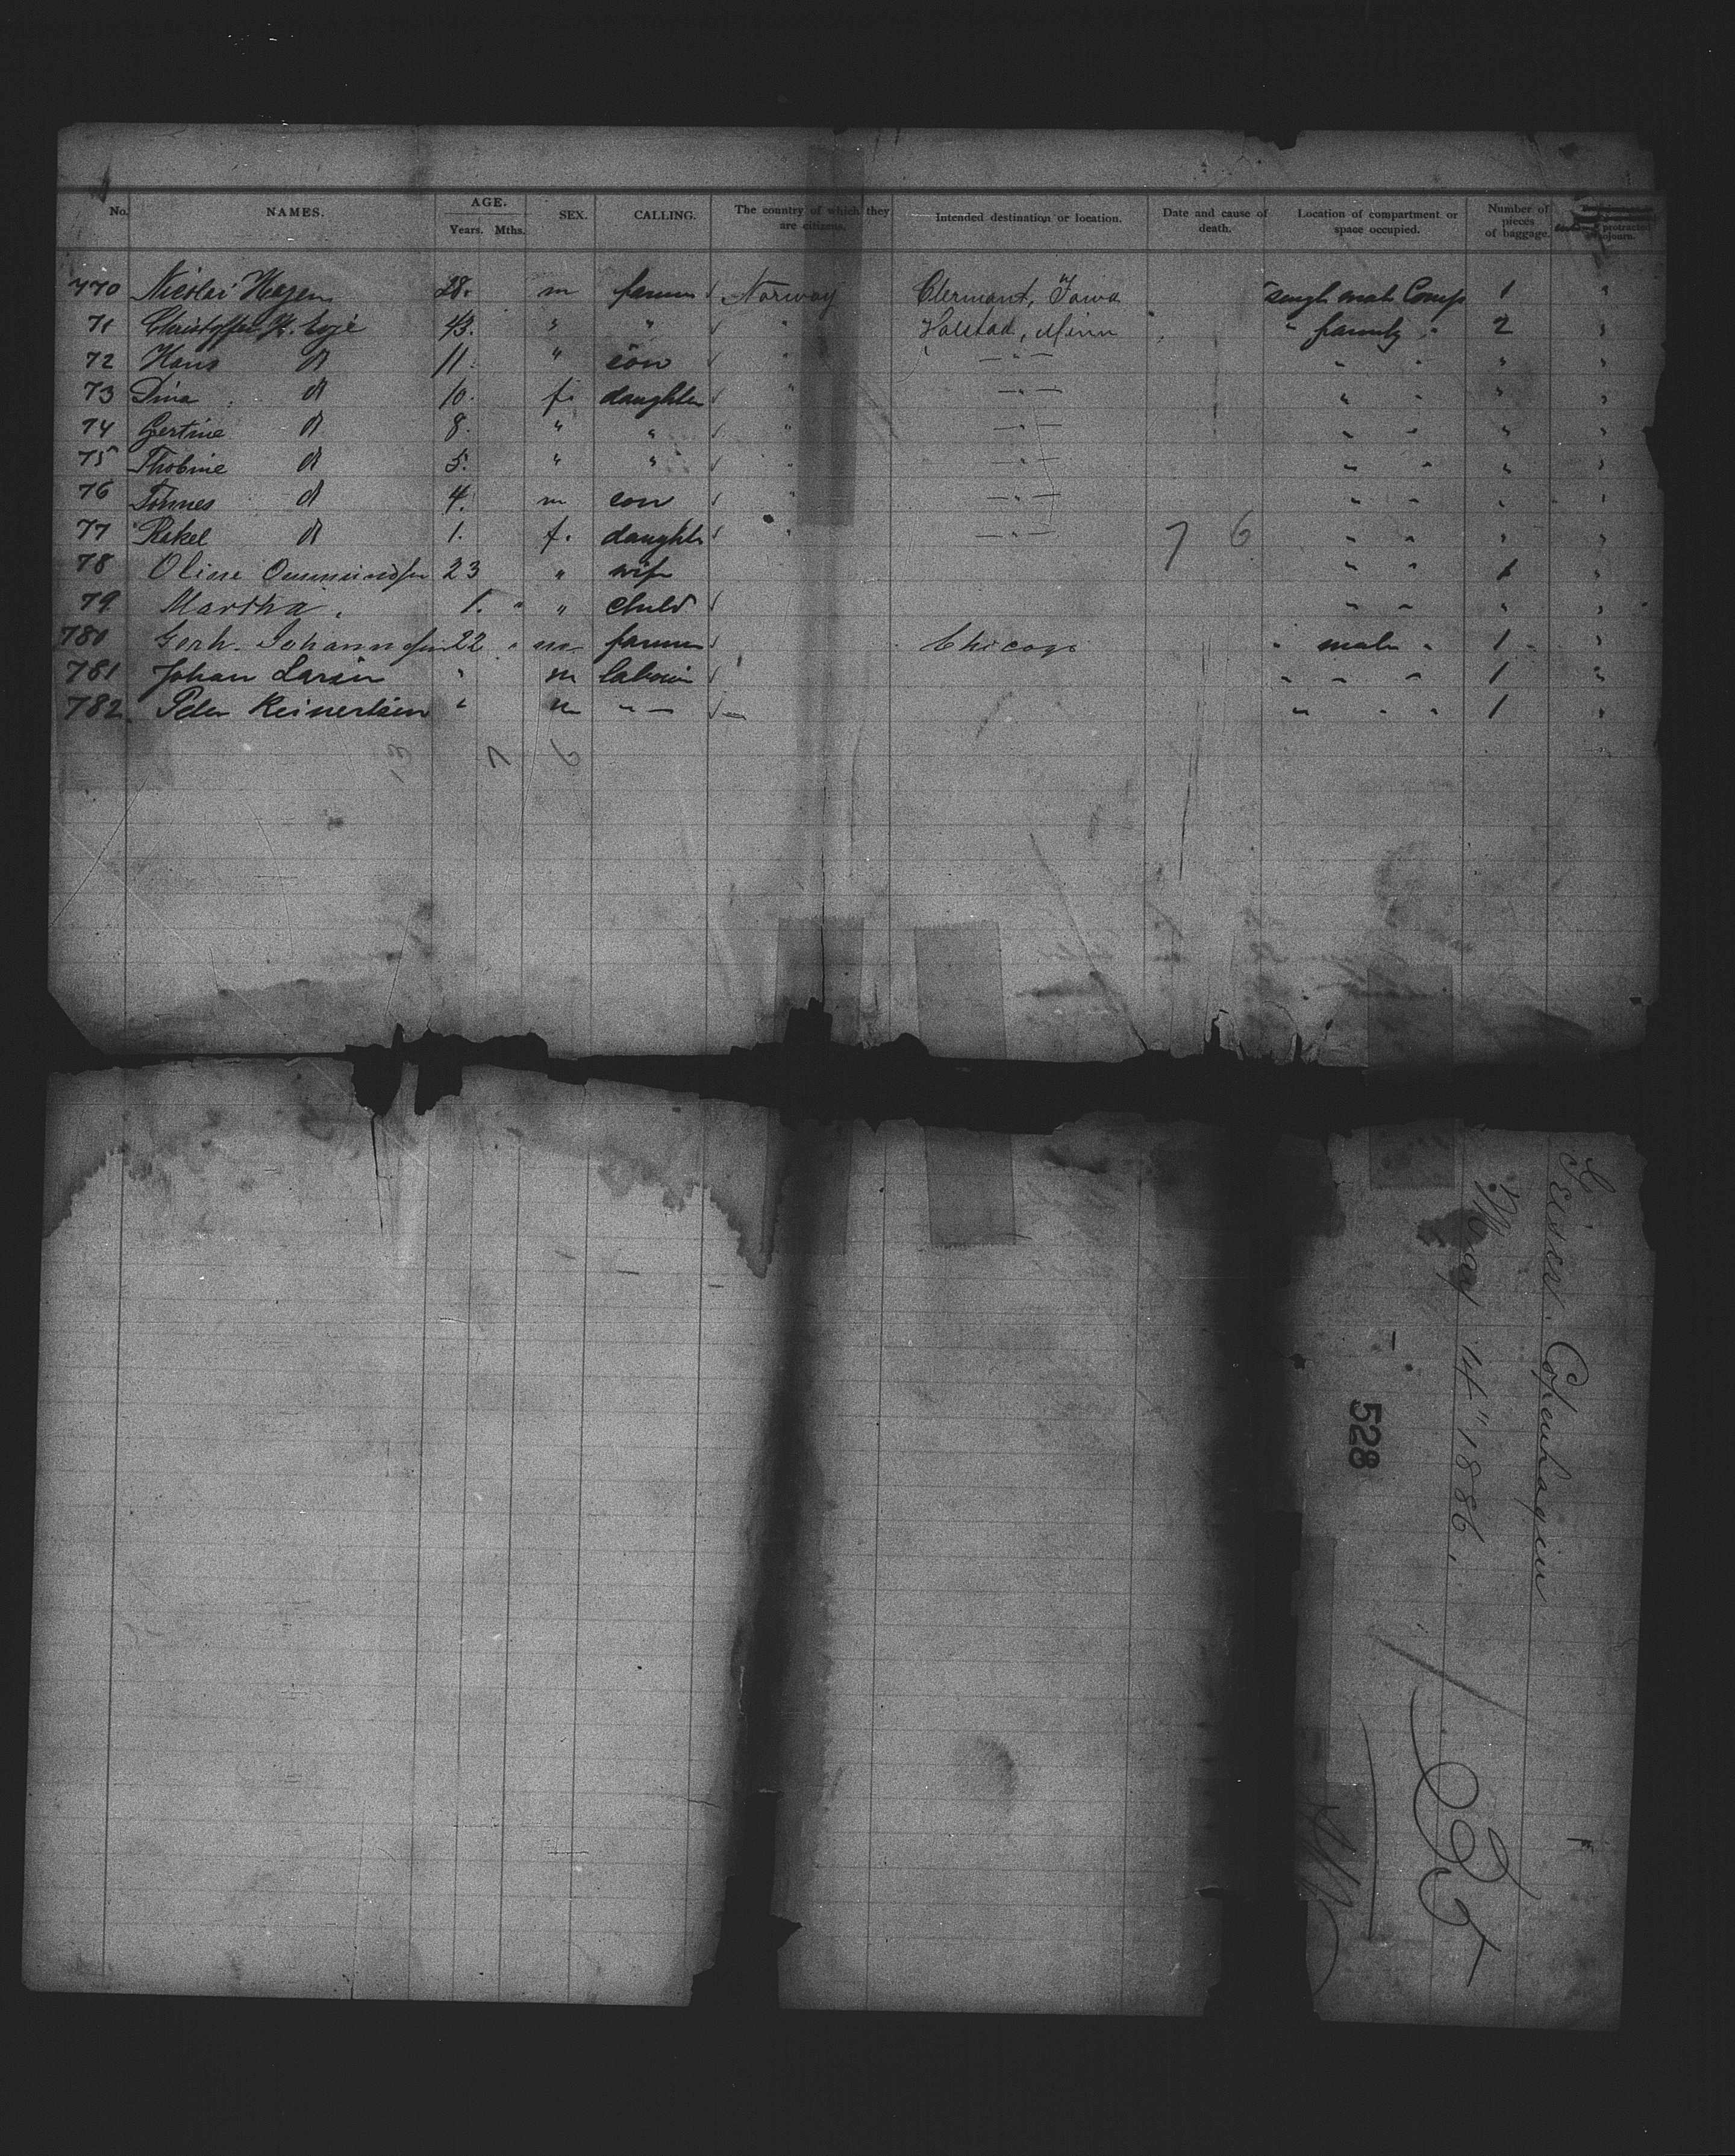 No. NAMES. AGE. Years. Mths. SEX. CALLING. The country of which they are citizens. Intended destination or location. Date and cause of death. Location of compartment or space occupied. Number of pieces of baggage. protracted sojourn.
770 Nicolai Hagen 28. m farmer Norway Clermont, Iowa singl male Comp 1 "
71 Christoffer H. 43. " " " Halstad, Minn " family " 2 "
72 Hans d 11. " son " — " — " " " "
73 Dina d 10. f. daughter " — " — " " " "
74 Gertine d 8. " " " — " — " " " "
75 Thobine d 5. " " " — " — " " " "
76 Tonnes d 4. m son " — " — " " " "
77 Rakel d 1. f. daughter " — " — 7 6 " " " "
78 Oline Ommundsen 23 " wife " " 1 "
79 Martha. 1. " " child " " " "
780 Gerh. Johannsen 22 " m farmer Chicago " male " 1 "
781 Johan Larsen " m labour " " " 1 "
782. Peter Reinertsen " m " — " " " 1 "
13 7 6
Geiser. Copenhagen
May 14" 1886.
528